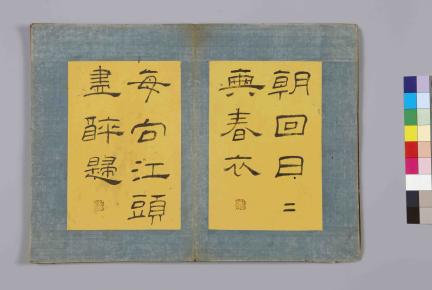 朝回日二
典春衣
每向江頭
盡醉歸